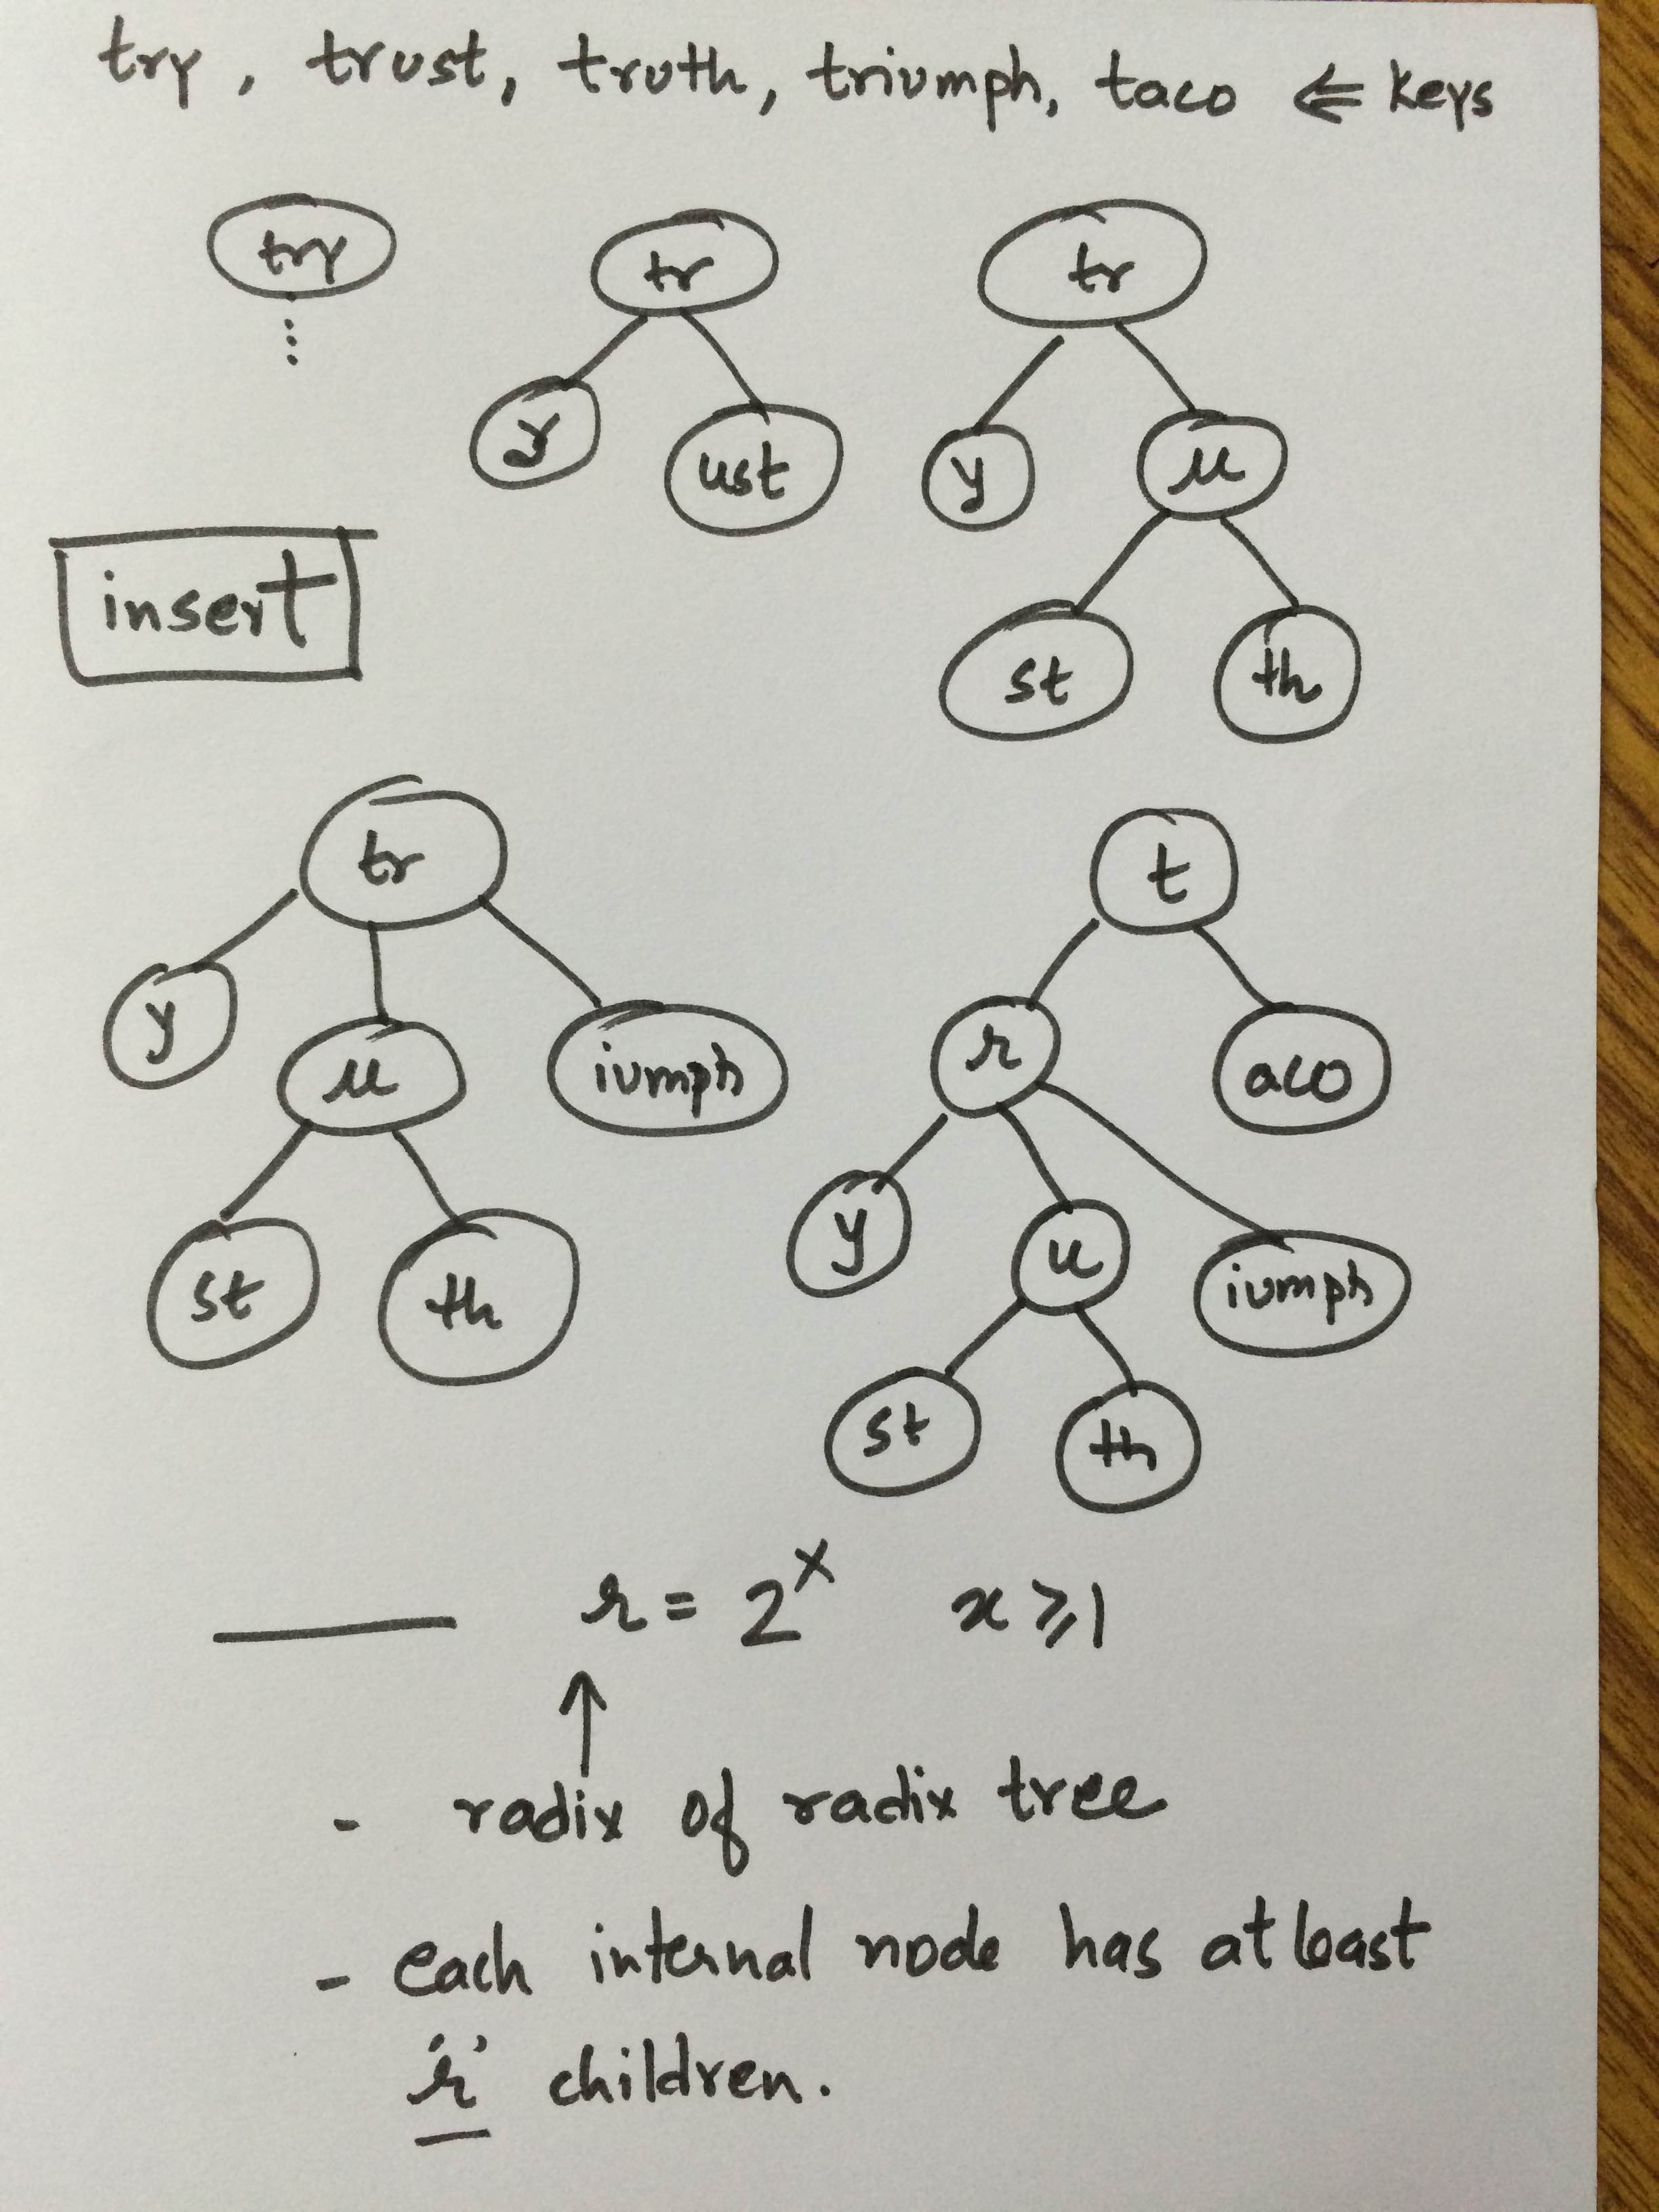 try, trust, truth, triumph, taco ⇐ keys
try
tr
y
ust
tr
y
u
st
th
insert
tr
y
u
iumph
st
th
t
r
aco
y
u
iumph
st
th
r = 2^x x ≥ 1
↑
- radix of radix tree
- each internal node has at least
'r' children.